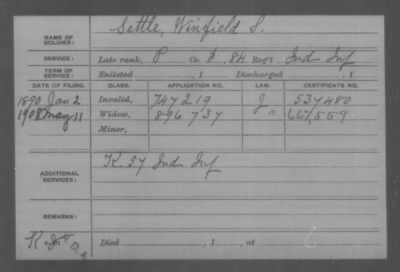 NAME OF SOLDIER: Settle, Winfield S.
SERVICE: Late rank, P Co. E, 84 Reg't Ind Inf
TERM OF SERVICE: Enlisted , 1 Discharged , 1
DATE OF FILING. CLASS. APPLICATION NO. LAW. CERTIFICATE NO.
1890 Jan 2 Invalid, 747219 J 537480
1908 May 11 Widow, 896737 a 667,559
Minor,
ADDITIONAL SERVICES: K. 57 Ind Inf
REMARKS:
Died , 1 , at